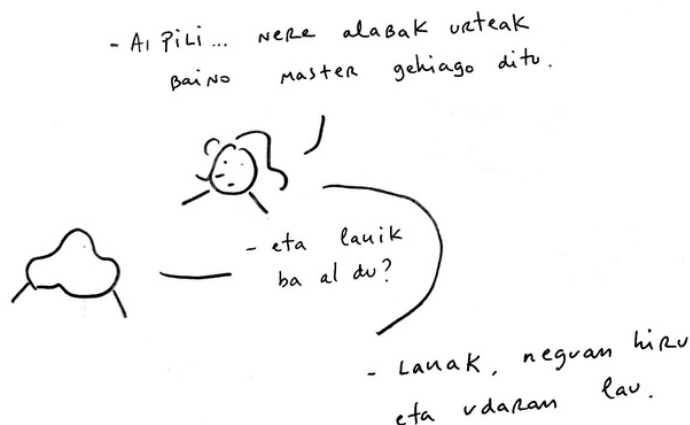 - Ai Pili... nere alabak urteak
baino master gehiago ditu.
- eta lanik
ba al du?
- Lanak, neguan hiru
eta udaran lau.